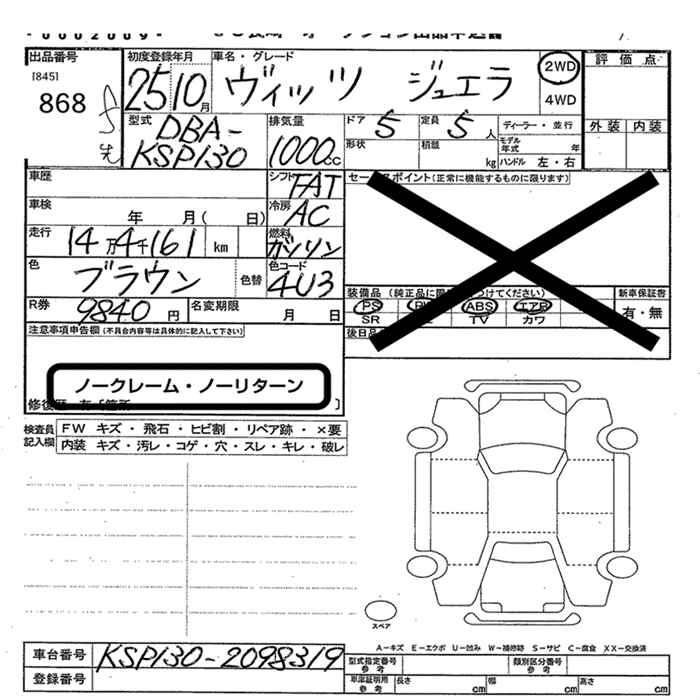 -0002009-
出品番号 初度登録年月 車名・グレード 評価点
[845]
868
25 10月 ヴィッツ ジュエラ 2WD
4WD
型式 DBA-
KSP130
排気量 1000cc
ドア 5 定員 5人 ディーラー・並行
形状 積載 kg モデル年式 年
ハンドル 左・右
外装 内装
車歴 シフト FAT セールスポイント(正常に機能するものに限ります)
車検 年 月( 日) 冷房 AC
走行 14万4千161 km 燃料 ガソリン
色 ブラウン 色替 色コード 4U3
R券 9840円 名変期限 月 日
装備品 (純正品に限 つけてください) 新車保証書
PS ABS エアB 有・無
SR TV カワ
後日品
注意事項申告欄(不具合内容等は具体的に記入して下さい)
ノークレーム・ノーリターン
検査員記入欄 FW キズ・飛石・ヒビ割・リペア跡・×要
内装 キズ・汚レ・コゲ・穴・スレ・キレ・破レ
スペア
A-キズ E-エクボ U-凹み W-補修跡 S-サビ C-腐食 XX-交換済
車台番号 KSP130-2098319
登録番号
型式指定番号 参考 類別区分番号 参考
車庫証明用 参考 長さ cm 幅 cm 高さ cm